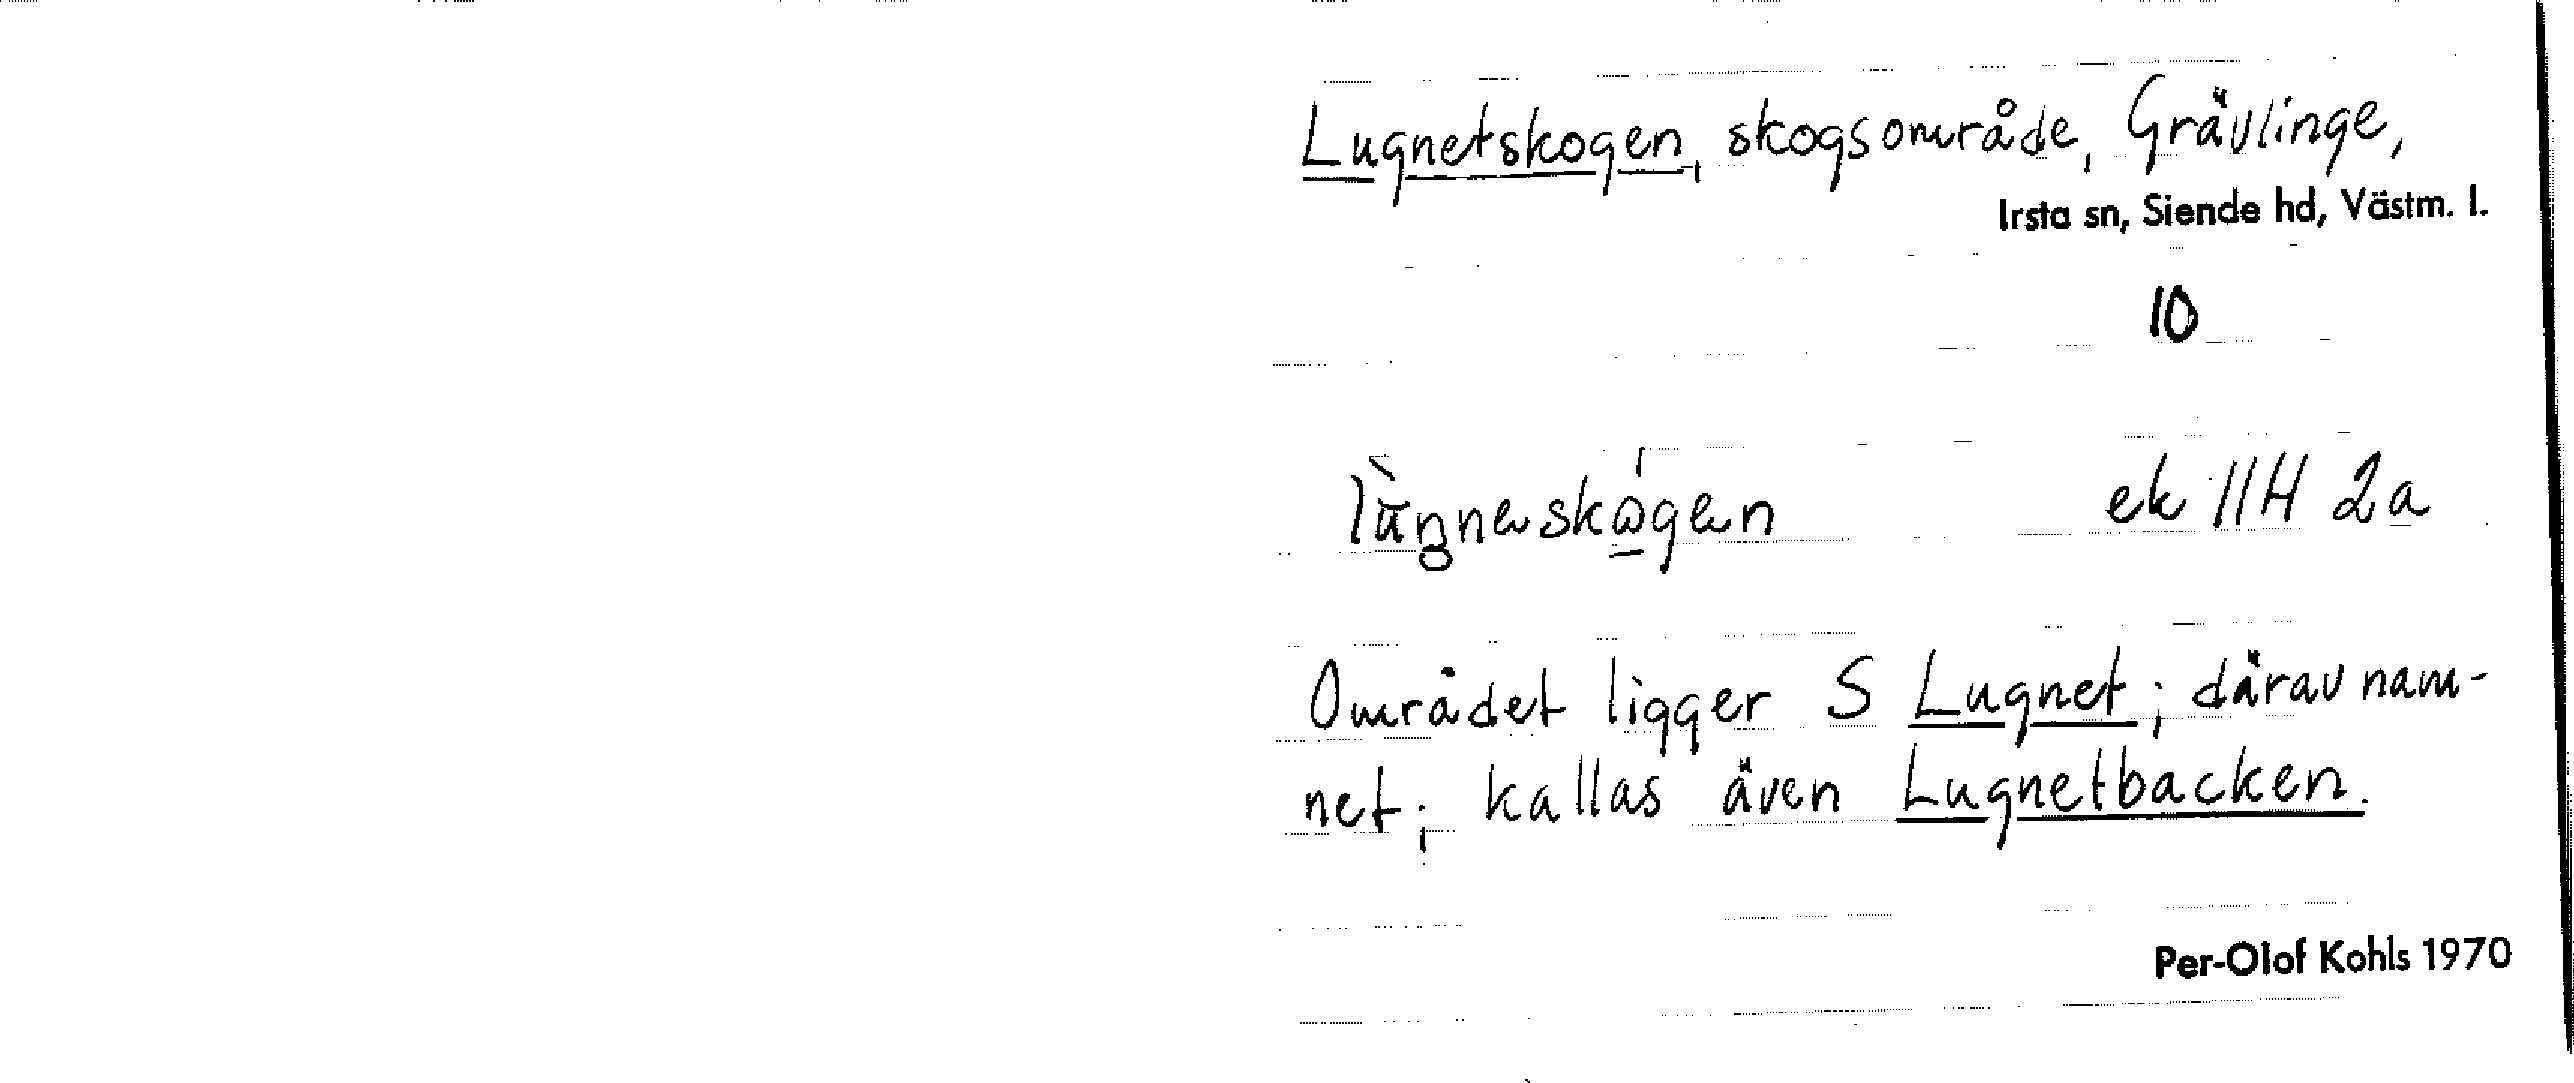 Lugnetskogen, skogsområde, Grävlinge,
Irsta sn, Siende hd, Västm. l.
10
ek 11H 2a
Området ligger S Lugnet; därav nam-
net; kallas även Lugnetbacken.
Per-Olof Kohls 1970